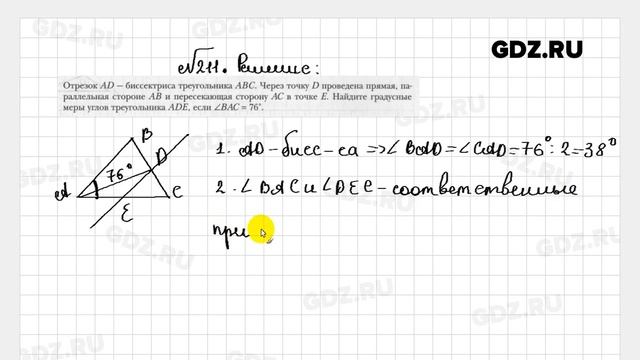 GDZ.RU
№211. Решение:
Отрезок AD — биссектриса треугольника ABC. Через точку D проведена прямая, па-
раллельная стороне AB и пересекающая сторону AC в точке E. Найдите градусные
меры углов треугольника ADE, если ∠BAC = 76°.
B
D
76°
A
C
E
1. AD – бисс–са => ∠BAD = ∠CAD = 76° : 2 = 38°
2. ∠BAC и ∠DEC – соответственные
при
GDZ.RU
GDZ.RU
GDZ.RU
GDZ.RU
GDZ.RU